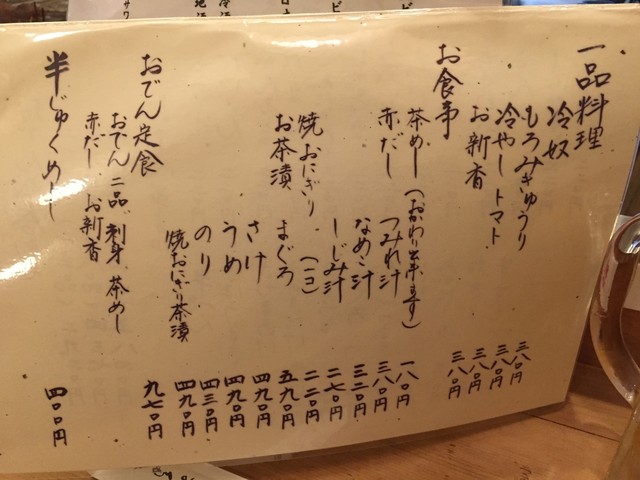 一品料理
冷奴 三八〇円
もろみきゅうり 三八〇円
冷やしトマト 三八〇円
お新香 三八〇円
お食事
茶めし(おかわり出来ます) 一八〇円
赤だし つみれ汁 三八〇円
なめこ汁 三二〇円
しじみ汁 二七〇円
焼おにぎり (一コ) 二二〇円
お茶漬 まぐろ 五九〇円
さけ 四九〇円
うめ 四九〇円
のり 四三〇円
焼おにぎり茶漬 四九〇円
おでん定食 九七〇円
おでん二品、刺身、茶めし
赤だし、お新香
半じゅくめし 四〇〇円